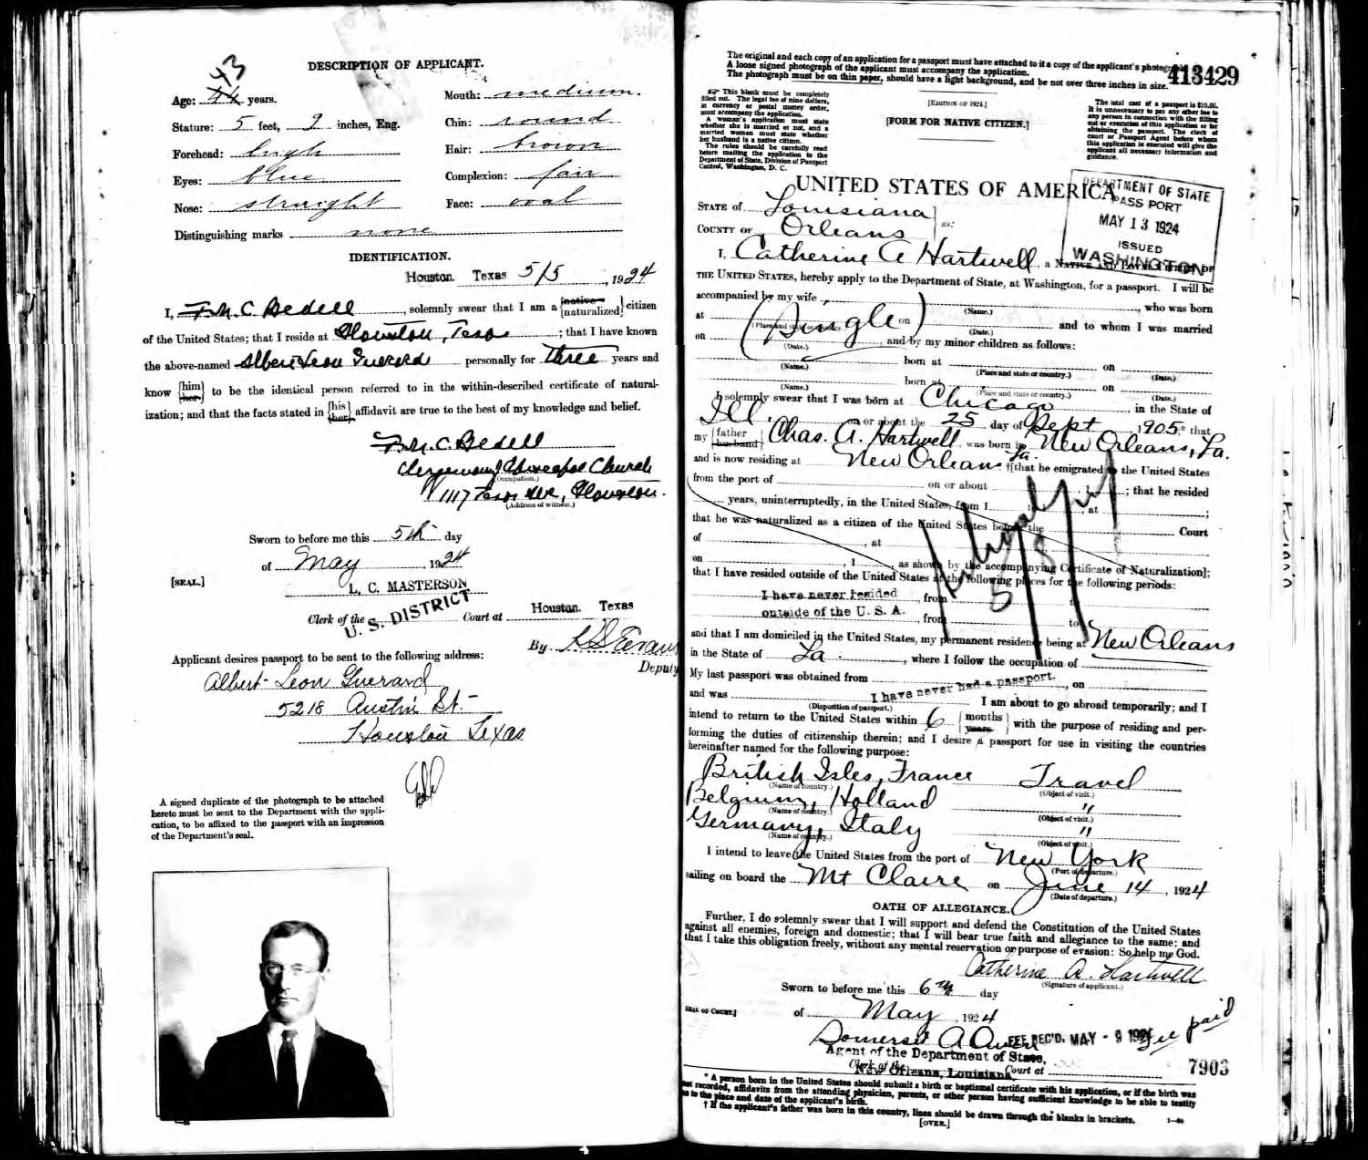 DESCRIPTION OF APPLICANT.
43
Age: 44 years.
Mouth: medium.
Stature: 5 feet, 9 inches, Eng.
Chin: round
Forehead: high
Hair: brown
Eyes: blue
Complexion: fair
Nose: straight
Face: oval
Distinguishing marks none
IDENTIFICATION.
Houston. Texas 5/5, 1924
I, F.M.C. Bedell, solemnly swear that I am a {native naturalized} citizen
of the United States; that I reside at Houston, Texas; that I have known
the above-named Albert Leon Guerard personally for three years and
know {him her} to be the identical person referred to in the within-described certificate of natural-
ization; and that the facts stated in {his her} affidavit are true to the best of my knowledge and belief.
F.M.C. Bedell
Clergyman Episcopal Church
(Occupation.)
1117 Texas Ave, Houston.
(Address of witness.)
Sworn to before me this 5th day
of May, 1924
[SEAL.]
L. C. MASTERSON
Clerk of the U. S. DISTRICT Court at Houston. Texas
By
Deputy
Applicant desires passport to be sent to the following address:
Albert Leon Guerard
5218 Austin St.
Houston Texas
A signed duplicate of the photograph to be attached
hereto must be sent to the Department with the appli-
cation, to be affixed to the passport with an impression
of the Department's seal.
The original and each copy of an application for a passport must have attached to it a copy of the applicant's photograph.
A loose signed photograph of the applicant must accompany the application.
The photograph must be on thin paper, should have a light background, and be not over three inches in size.
413429
This blank must be completely
filled out. The legal fee of nine dollars,
in currency or postal money order,
must accompany the application.
A woman's application must state
whether she is married or not, and a
married woman must state whether
her husband is a native citizen.
The rules should be carefully read
before mailing the application to the
Department of State, Division of Passport
Control, Washington, D. C.
[EDITION OF 1921.]
[FORM FOR NATIVE CITIZEN.]
The total cost of a passport is $10.00.
It is unnecessary to pay any other fee to
any person in connection with the filling
out or execution of this application or for
obtaining the passport. The clerk of
court or Passport Agent before whom
this application is executed will give the
applicant all necessary information and
guidance.
UNITED STATES OF AMERICA,
DEPARTMENT OF STATE
PASSPORT
MAY 13 1924
ISSUED
WASHINGTON
STATE OF Louisiana
COUNTY OF Orleans ss:
I, Catherine A Hartwell, a NATIVE AND LOYAL CITIZEN OF
THE UNITED STATES, hereby apply to the Department of State, at Washington, for a passport. I will be
accompanied by my wife, , who was born
(Name.)
at (Single) on and to whom I was married
(Place and state or country.) (Date.)
on , and by my minor children as follows:
(Date.)
born at on
(Name.) (Place and state or country.) (Date.)
born at on
(Name.) (Place and state or country.) (Date.)
I solemnly swear that I was born at Chicago, in the State of
Ill. on or about the 25 day of Sept, 1905; that
my {father husband} Chas. A. Hartwell was born in New Orleans, La.
and is now residing at New Orleans La. †[that he emigrated to the United States
from the port of on or about , 1 ; that he resided
years, uninterruptedly, in the United States, from 1 to 1 at ;
that he was naturalized as a citizen of the United States before the Court
of , at
on , 1 , as shown by the accompanying Certificate of Naturalization];
that I have resided outside of the United States at the following places for the following periods:
I have never resided, from to
outside of the U. S. A., from to
and that I am domiciled in the United States, my permanent residence being at New Orleans
in the State of La, where I follow the occupation of
My last passport was obtained from , on
and was I have never had a passport. I am about to go abroad temporarily; and I
(Disposition of passport.)
intend to return to the United States within 6 {months years} with the purpose of residing and per-
forming the duties of citizenship therein; and I desire a passport for use in visiting the countries
hereinafter named for the following purpose:
British Isles, France Travel
(Name of country.) (Object of visit.)
Belgium, Holland "
(Name of country.) (Object of visit.)
Germany, Italy "
(Name of country.) (Object of visit.)
I intend to leave the United States from the port of New York
(Port of departure.)
sailing on board the Mt Claire on June 14, 1924
(Date of departure.)
OATH OF ALLEGIANCE.
Further, I do solemnly swear that I will support and defend the Constitution of the United States
against all enemies, foreign and domestic; that I will bear true faith and allegiance to the same; and
that I take this obligation freely, without any mental reservation or purpose of evasion: So help me God.
Catherine A. Hartwell
(Signature of applicant.)
Sworn to before me this 6th day
[SEAL OF COURT.]
of May, 1924
Somerset A Owen
FEE REC'D. MAY - 9 1924
fee paid
Agent of the Department of State,
Clerk of the Court at
New Orleans, Louisiana
7903
* A person born in the United States should submit a birth or baptismal certificate with his application, or if the birth was
not recorded, affidavits from the attending physician, parents, or other person having sufficient knowledge to be able to testify
as to the place and date of the applicant's birth.
† If the applicant's father was born in this country, lines should be drawn through the blanks in brackets.
[OVER.]